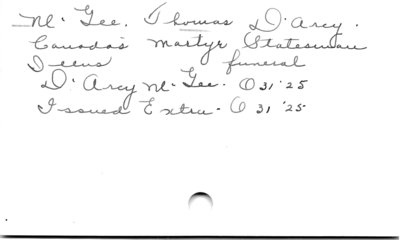 Mc Gee. Thomas D'Arcy.
Canada's Martyr Statesman
funeral
D'Arcy Mc Gee. O 31 '25
Issued Extra - O 31 '25